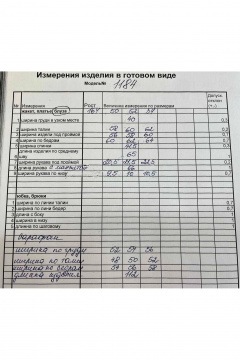 Измерения изделия в готовом виде
Модель№ 1184
жакет, платье, блуза
№ Измерения Рост. 164 Величина измерения по размерам Допуск отклон (+,-)
50 52 54
1 ширина груди в узком месте 40 0,3
2 ширина талии 58 60 62
3 ширина изделия под проймой 56 58 60
4 ширина по бедрам 60 62 64
5 ширина спинки 41,5
длина изделия по средней шву 65
ширина рукава под проймой 20,5 21,5 22,5
длина рукава
ширина рукава по низу 9,5 10 10,5
юбка, брюки
1 ширина по линии талии 0,7
2 ширина по лини бедер 0,7
3 длина с боку 1
4 ширина в низу 1
5 длина по шаговому 0,7
Сарафан
ширина по груди 52 54 56
ширина по талии 48 50 52
ширина по бедрам 54 56 58
длина изделия 112